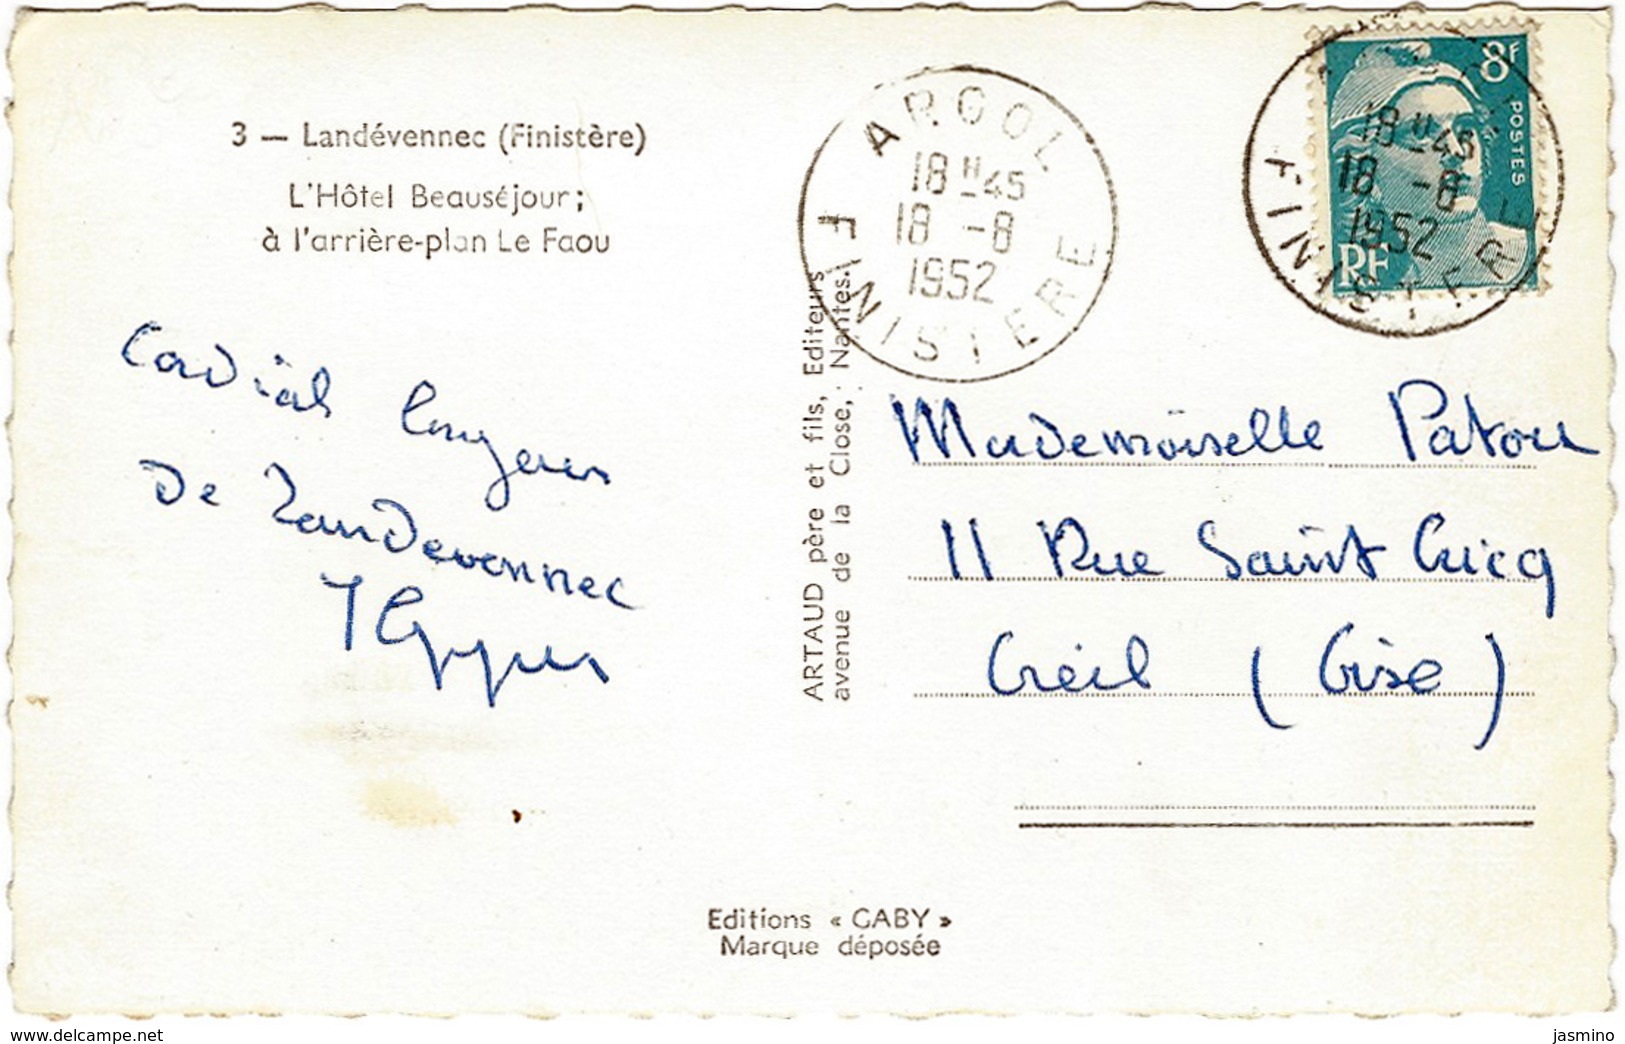 3 — Landévennec (Finistère)
L'Hôtel Beauséjour;
à l'arrière-plan Le Faou
Cordial
De Landevennec
ARGOL
18 H 45
18 -8
1952
FINISTERE
8F
POSTES
RF
18 H 45
18 -8
1952
FINISTERE
ARTAUD père et fils, Editeurs
avenue de la Close, Nantes.
Mademoiselle Patou
11 Rue Saint Cricq
Creil (Oise)
Editions « GABY »
Marque déposée
www.delcampe.net
jasmino